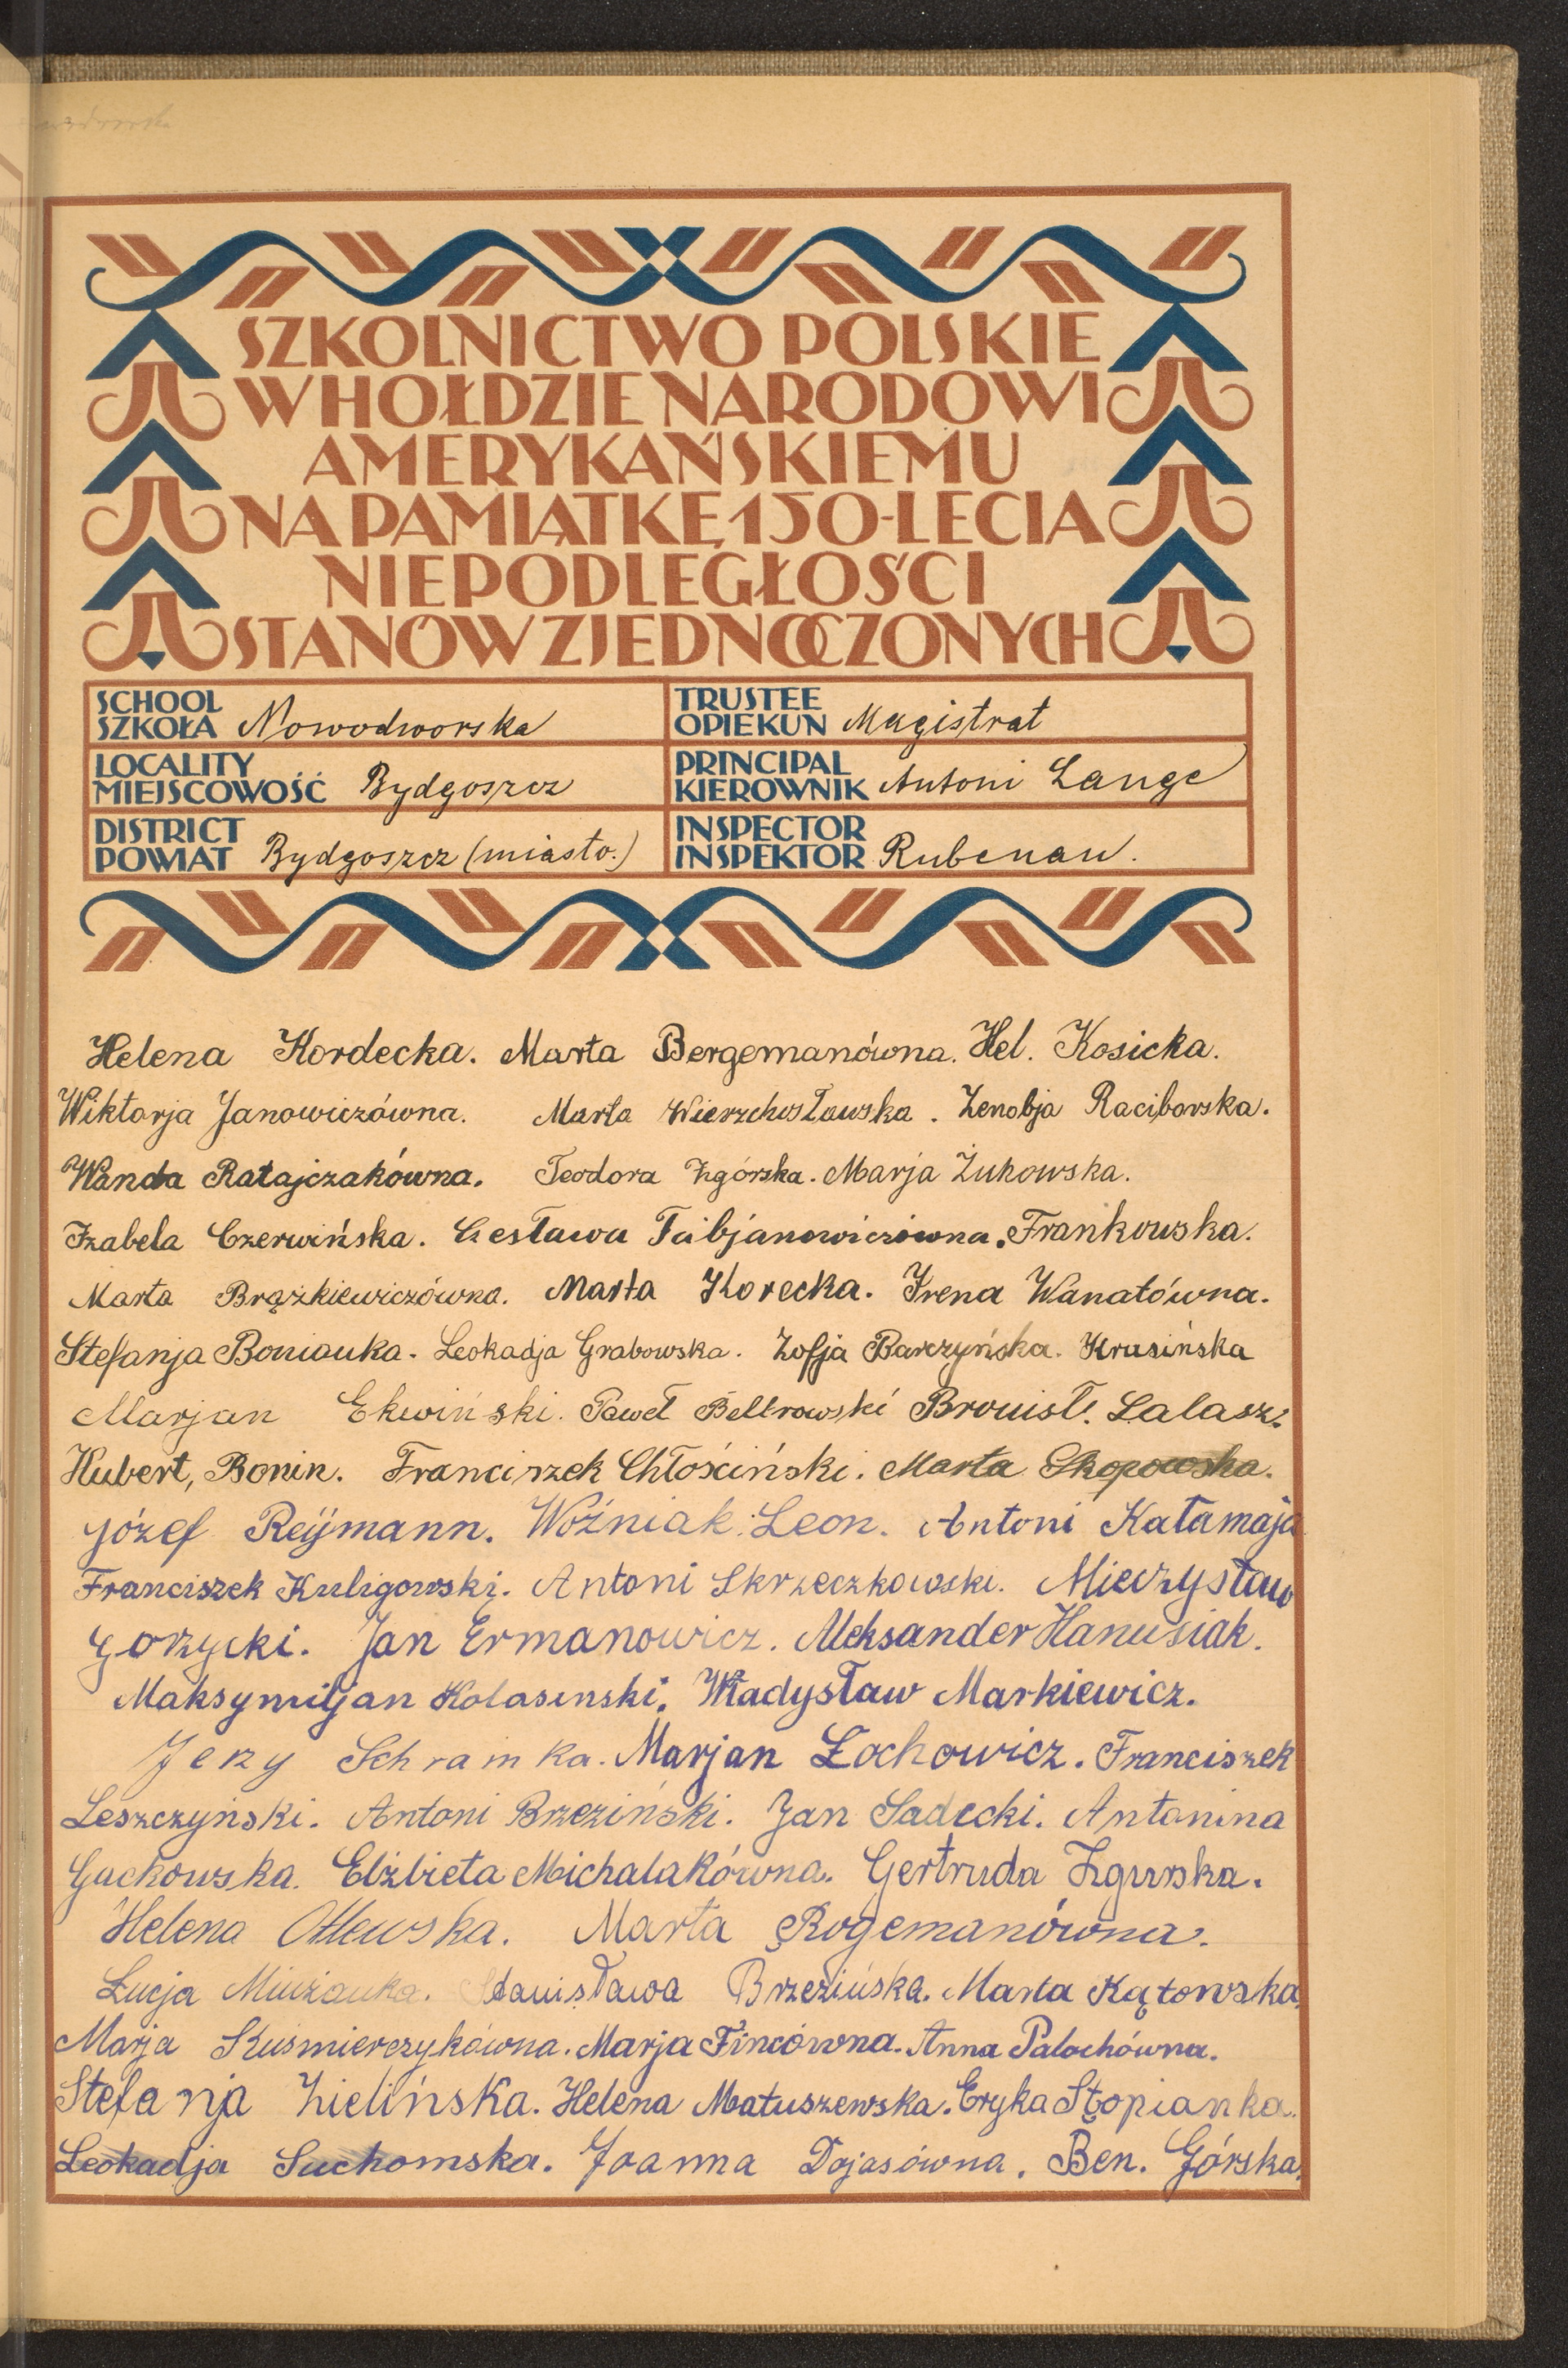 SZKOLNICTWO POLSKIE
W HOŁDZIE NARODOWI
AMERYKAŃSKIEMU
NA PAMIĄTKĘ 150-LECIA
NIEPODLEGŁOŚCI
STANÓW ZJEDNOCZONYCH
SCHOOL
SZKOŁA Nowodworska
TRUSTEE
OPIEKUN Magistrat
LOCALITY
MIEJSCOWOŚĆ Bydgoszcz
PRINCIPAL
KIEROWNIK Antoni Lange
DISTRICT
POWIAT Bydgoszcz (miasto.)
INSPECTOR
INSPEKTOR Rubenau.
Helena Kordecka. Marta Bergemanówna. Hel. Kosicka.
Wiktorja Janowiczówna. Marta Wierzchosławska. Zenobja Raciborska.
Wanda Ratajczakówna. Teodora Zgórska. Marja Żukowska.
Izabela Czerwińska. Czesława Fabjanowiczówna. Frankowska.
Marta Brązkiewiczówna. Marta Korecka. Irena Wanatówna.
Stefanja Bonianka. Leokadja Grabowska. Zofja Barczyńska. Krusińska
Marjan Ekwiński. Paweł Beltrowski Bronisł. Lalasz.
Hubert, Bonin. Franciszek Chłościński. Marta Skopowska.
Józef Reijmann. Woźniak Leon. Antoni Katamaja
Franciszek Kuligowski. Antoni Skrzeczkowski. Mieczysław
Gorzycki. Jan Ermanowicz. Aleksander Hanusiak.
Maksymiljan Kolasinski. Władysław Markiewicz.
Jerzy Schramka. Marjan Łochowicz. Franciszek
Leszczyński. Antoni Brzeziński. Jan Sadecki. Antonina
Guckowska. Elżbieta Michalakówna. Gertruda Zgurska.
Helena Otlewska. Marta Rogemanówna.
Łucja Stanisława Brzezińska. Marta Kątowska.
Marja Kuśmierczykówna. Marja Fincówna. Anna Palochówna.
Stefanja Zielińska. Helena Matuszewska. Eryka Stopianka.
Leokadja Suchomska. Joanna Dojasówna. Ben. Górska.